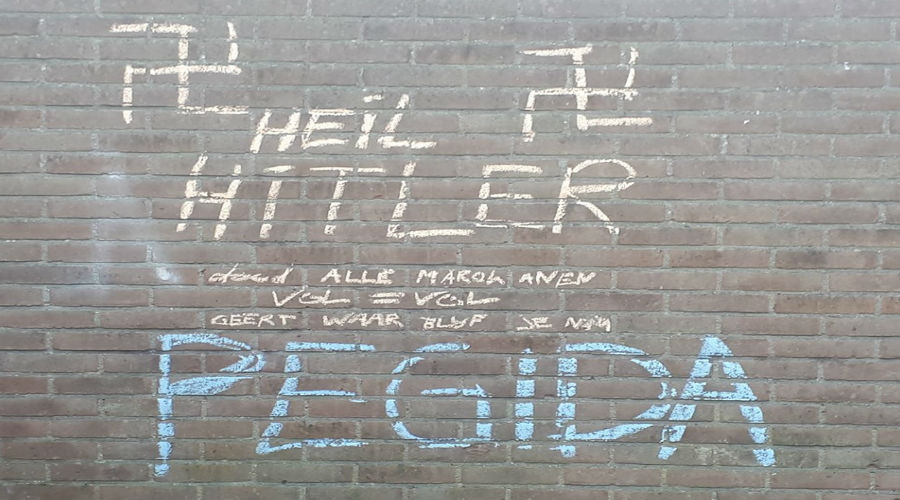 HEIL
HITLER
dood ALLE MAROKANEN
VOL = VOL
GEERT WAAR BLYF JE NOU
PEGIDA